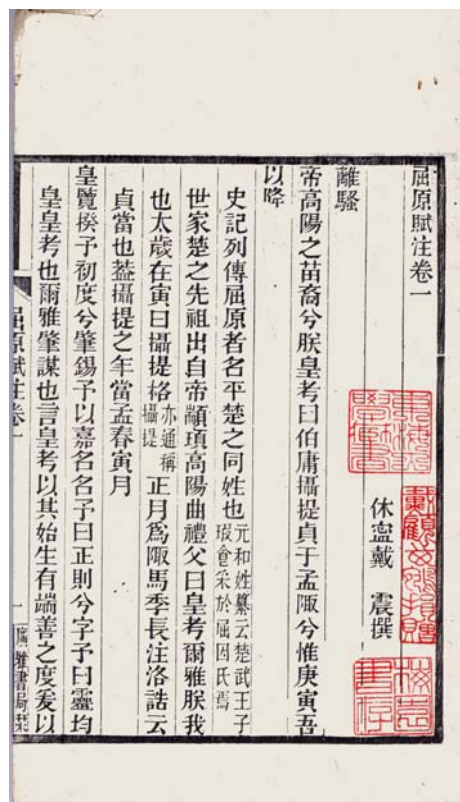 屈原賦注卷一
休寧戴　震撰
離騷
帝高陽之苗裔兮朕皇考曰伯庸攝提貞于孟陬兮惟庚寅吾
以降
史記列傳屈原者名平楚之同姓也元和姓纂云楚武王子
瑕食采於屈因氏焉
世家楚之先祖出自帝顓頊高陽曲禮父曰皇考爾雅朕我
也太歲在寅曰攝提格亦通稱
攝提正月爲陬馬季長注洛誥云
貞當也蓋攝提之年當孟春寅月
皇覽揆予初度兮肇錫予以嘉名名予曰正則兮字予曰靈均
皇皇考也爾雅肇謀也言皇考以其始生有端善之度爰以
屈原賦注卷一
一
廣雅書局栞